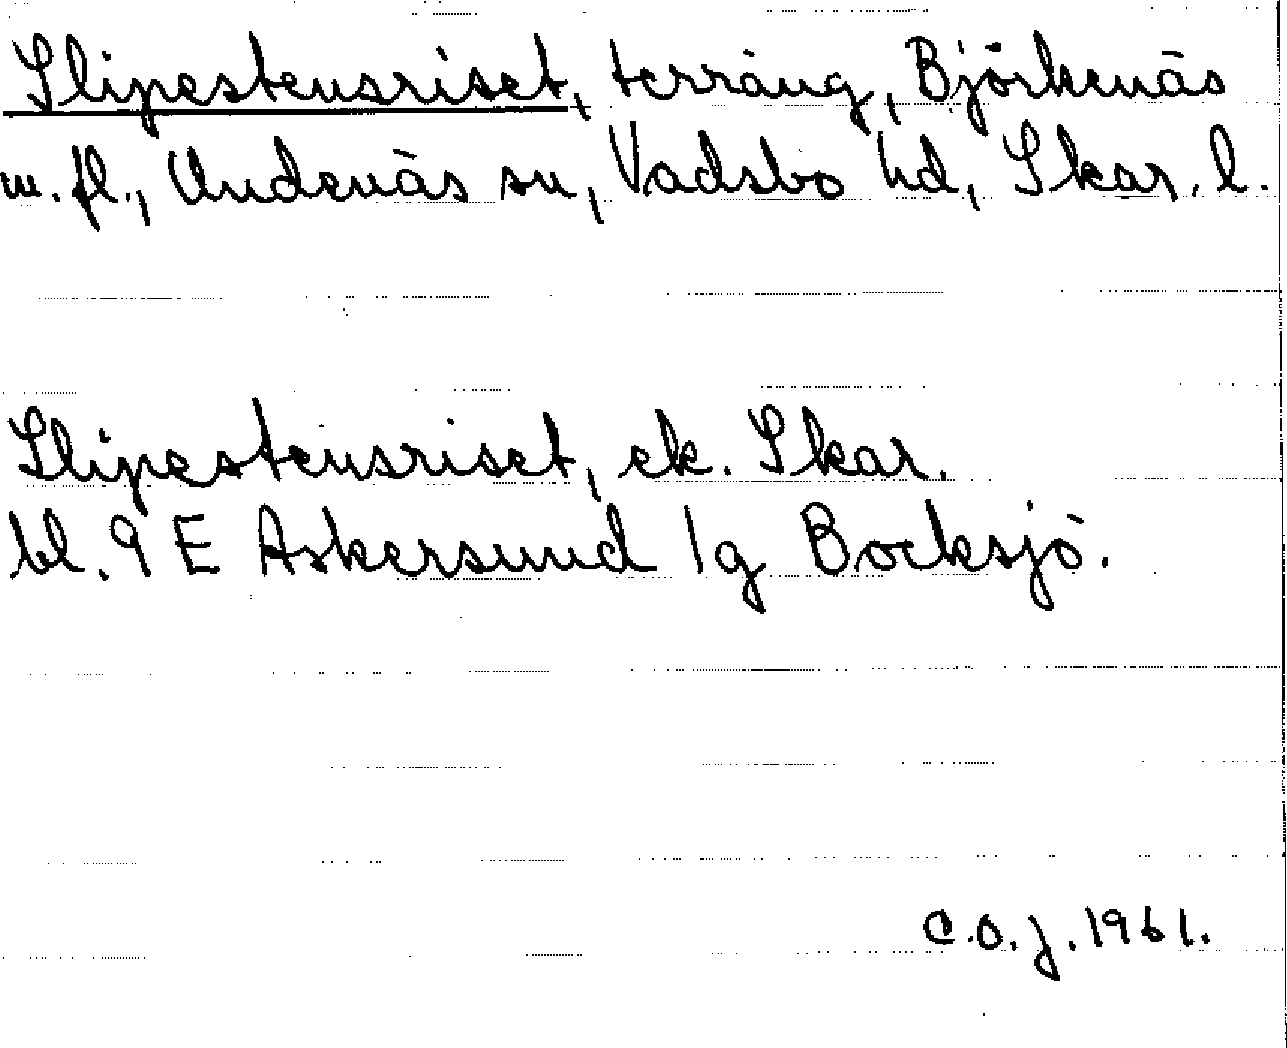 Slipestensriset, terräng, Björkenäs
m. fl., Undenäs sn, Vadsbo hd, Skar. l.
Slipestensriset, ek. Skar.
bl. 9 E Askersund 1g Bocksjö.
C.O.J. 1961.